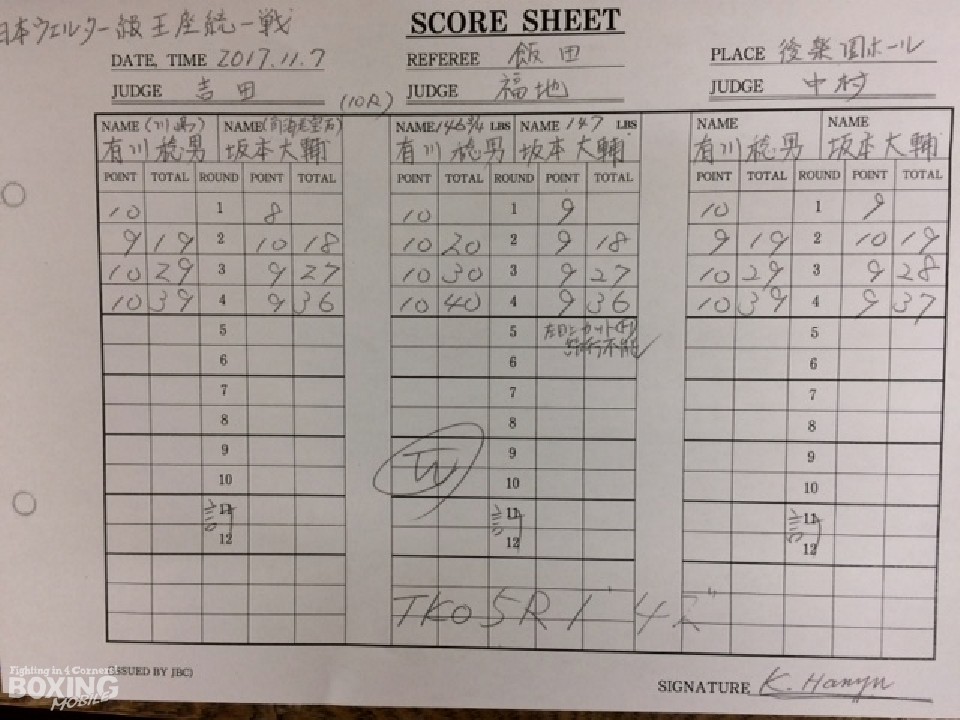 日本ウェルター級王座統一戦
SCORE SHEET
DATE, TIME 2017.11.7 REFEREE 飯田 PLACE 後楽園ホール
JUDGE 吉田 (10R) JUDGE 福地 JUDGE 中村
NAME (川島) NAME NAME 146 3/4 LBS NAME 147 LBS NAME NAME
有川稔男 坂本大輔 有川稔男 坂本大輔 有川稔男 坂本大輔
POINT TOTAL ROUND POINT TOTAL POINT TOTAL ROUND POINT TOTAL POINT TOTAL ROUND POINT TOTAL
10 1 8 10 1 9 10 1 9
9 19 2 10 18 10 20 2 9 18 9 19 2 10 19
10 29 3 9 27 10 30 3 9 27 10 29 3 9 28
10 39 4 9 36 10 40 4 9 36 10 39 4 9 37
5 5 5
6 6 6
7 7 7
8 8 8
9 W 9 9
10 10 10
計 11 計 11 計 11
12 12 12
TKO 5R 1' 42"
ISSUED BY JBC)
SIGNATURE K. Hanyu
Fighting in 4 Corners
BOXING
MOBILE